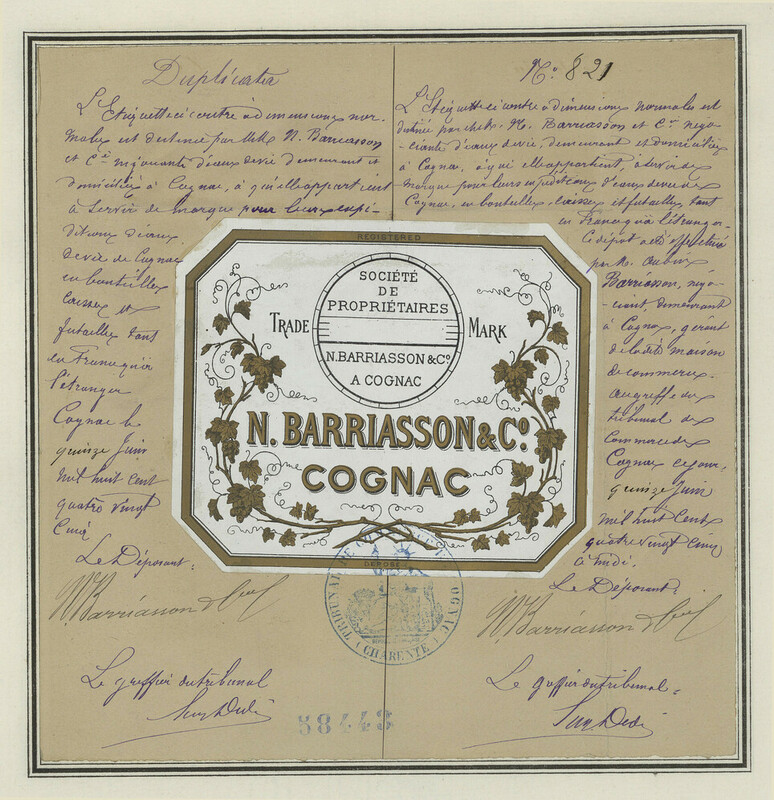 Duplicata
L'Etiquette ci contre à dimensions nor-
males est destinée par MM. N. Barriasson
et Cie négociants d'eaux devie demeurant et
domiciliés à Cognac, à qui elle appartient
à servir de marque pour leurs expé-
ditions d'eaux
devie de Cognac
en bouteilles
caisses et
futailles tant
en France qu'à
l'étranger
Cognac le
quinze Juin
mil huit cent
quatre vingt
Cinq
Le Déposant:
N. Barriasson & Cie
Le greffier du tribunal
No. 821
L'Etiquette ci contre à dimensions normales est
destinée par MM. N. Barriasson et Cie négo-
ciants d'eaux devie, demeurant et domiciliés
à Cognac, à qui elle appartient, à servir de
marque pour leurs expéditions d'eaux devie de
Cognac, en bouteilles, caisses et futailles, tant
en France qu'à l'étranger-
Ce dépôt a été effectué
par M. Aubin
Barriasson, négo-
ciant, demeurant
à Cognac, gérant
de la dite maison
de commerce-
au greffe du
tribunal de
Commerce de
Cognac ce jour,
quinze Juin
mil huit Cent
quatre vingt Cinq
à midi.
Le Déposant:
N. Barriasson & Cie
Le greffier du tribunal:
REGISTERED
SOCIÉTÉ
DE
PROPRIÉTAIRES
TRADE MARK
N. BARRIASSON & Co
A COGNAC
N. BARRIASSON & Co.
COGNAC
DÉPOSÉ
TRIBUNAL DE COMMERCE COGNAC
(CHARENTE)
58443